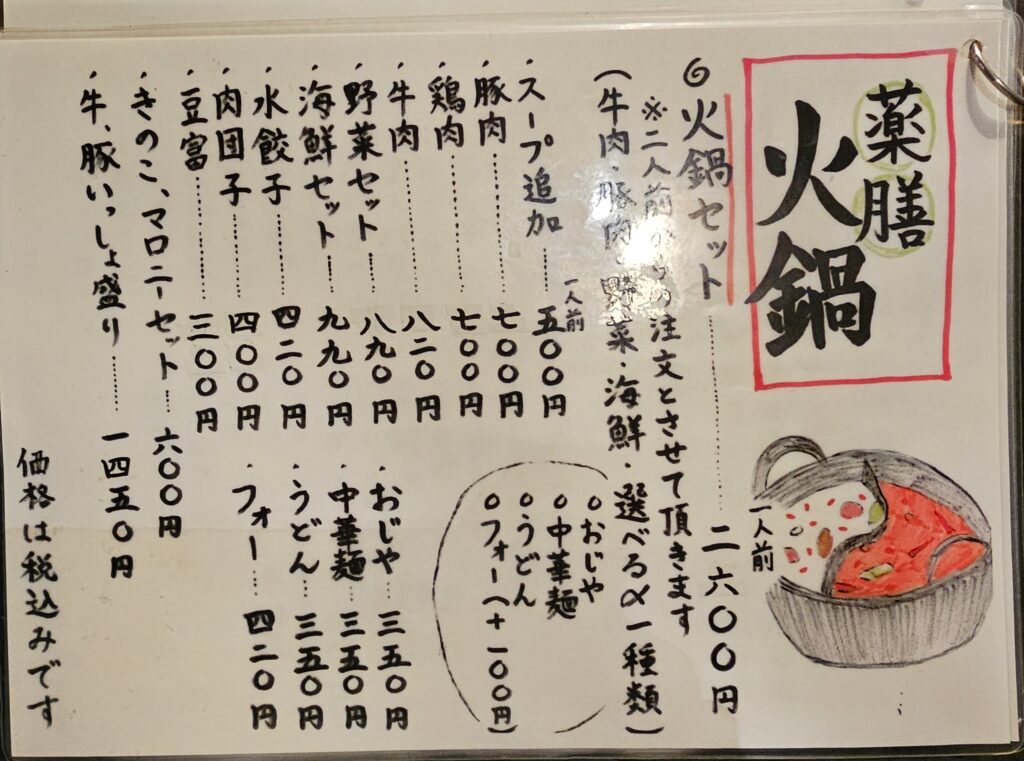 薬膳
火鍋
◎火鍋セット……二六〇〇円
一人前
※二人前からの注文とさせて頂きます
(牛肉・豚肉・野菜・海鮮・選べる〆一種類)
○おじや
○中華麺
○うどん
○フォー(+一〇〇円)
・スープ追加……五〇〇円
一人前
・豚肉……七〇〇円
・鶏肉……七〇〇円
・牛肉……八二〇円
・野菜セット……八九〇円
・海鮮セット……九九〇円
・水餃子……四二〇円
・肉団子……四〇〇円
・豆富……三〇〇円
・きのこ、マロニーセット……六〇〇円
・牛、豚いっしょ盛り……一四五〇円
・おじや……三五〇円
・中華麺……三五〇円
・うどん……三五〇円
・フォー……四二〇円
価格は税込みです